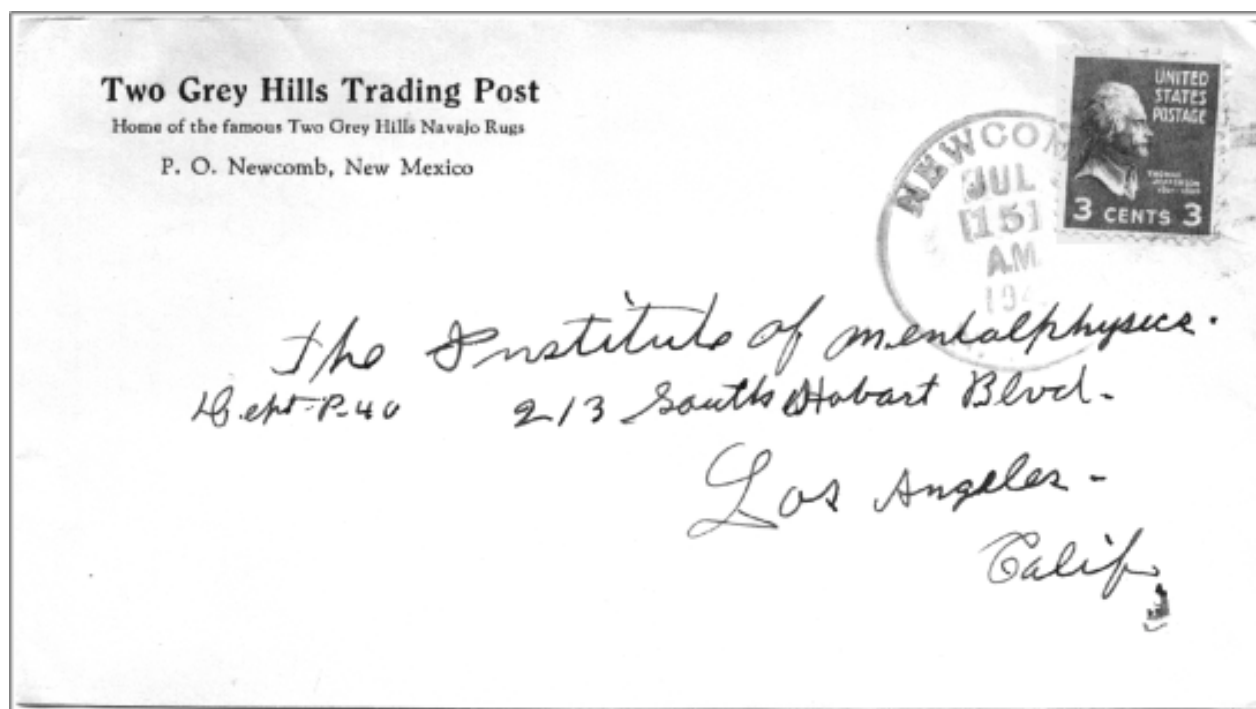 Two Grey Hills Trading Post
Home of the famous Two Grey Hills Navajo Rugs
P. O. Newcomb, New Mexico
UNITED
STATES
POSTAGE
THOMAS
JEFFERSON
3 CENTS 3
NEWCOM
JUL
15
A.M.
194
The Institute of mentalphysics.
Dept-P-40 213 South Hobart Blvd.
Los Angeles-
Calif.